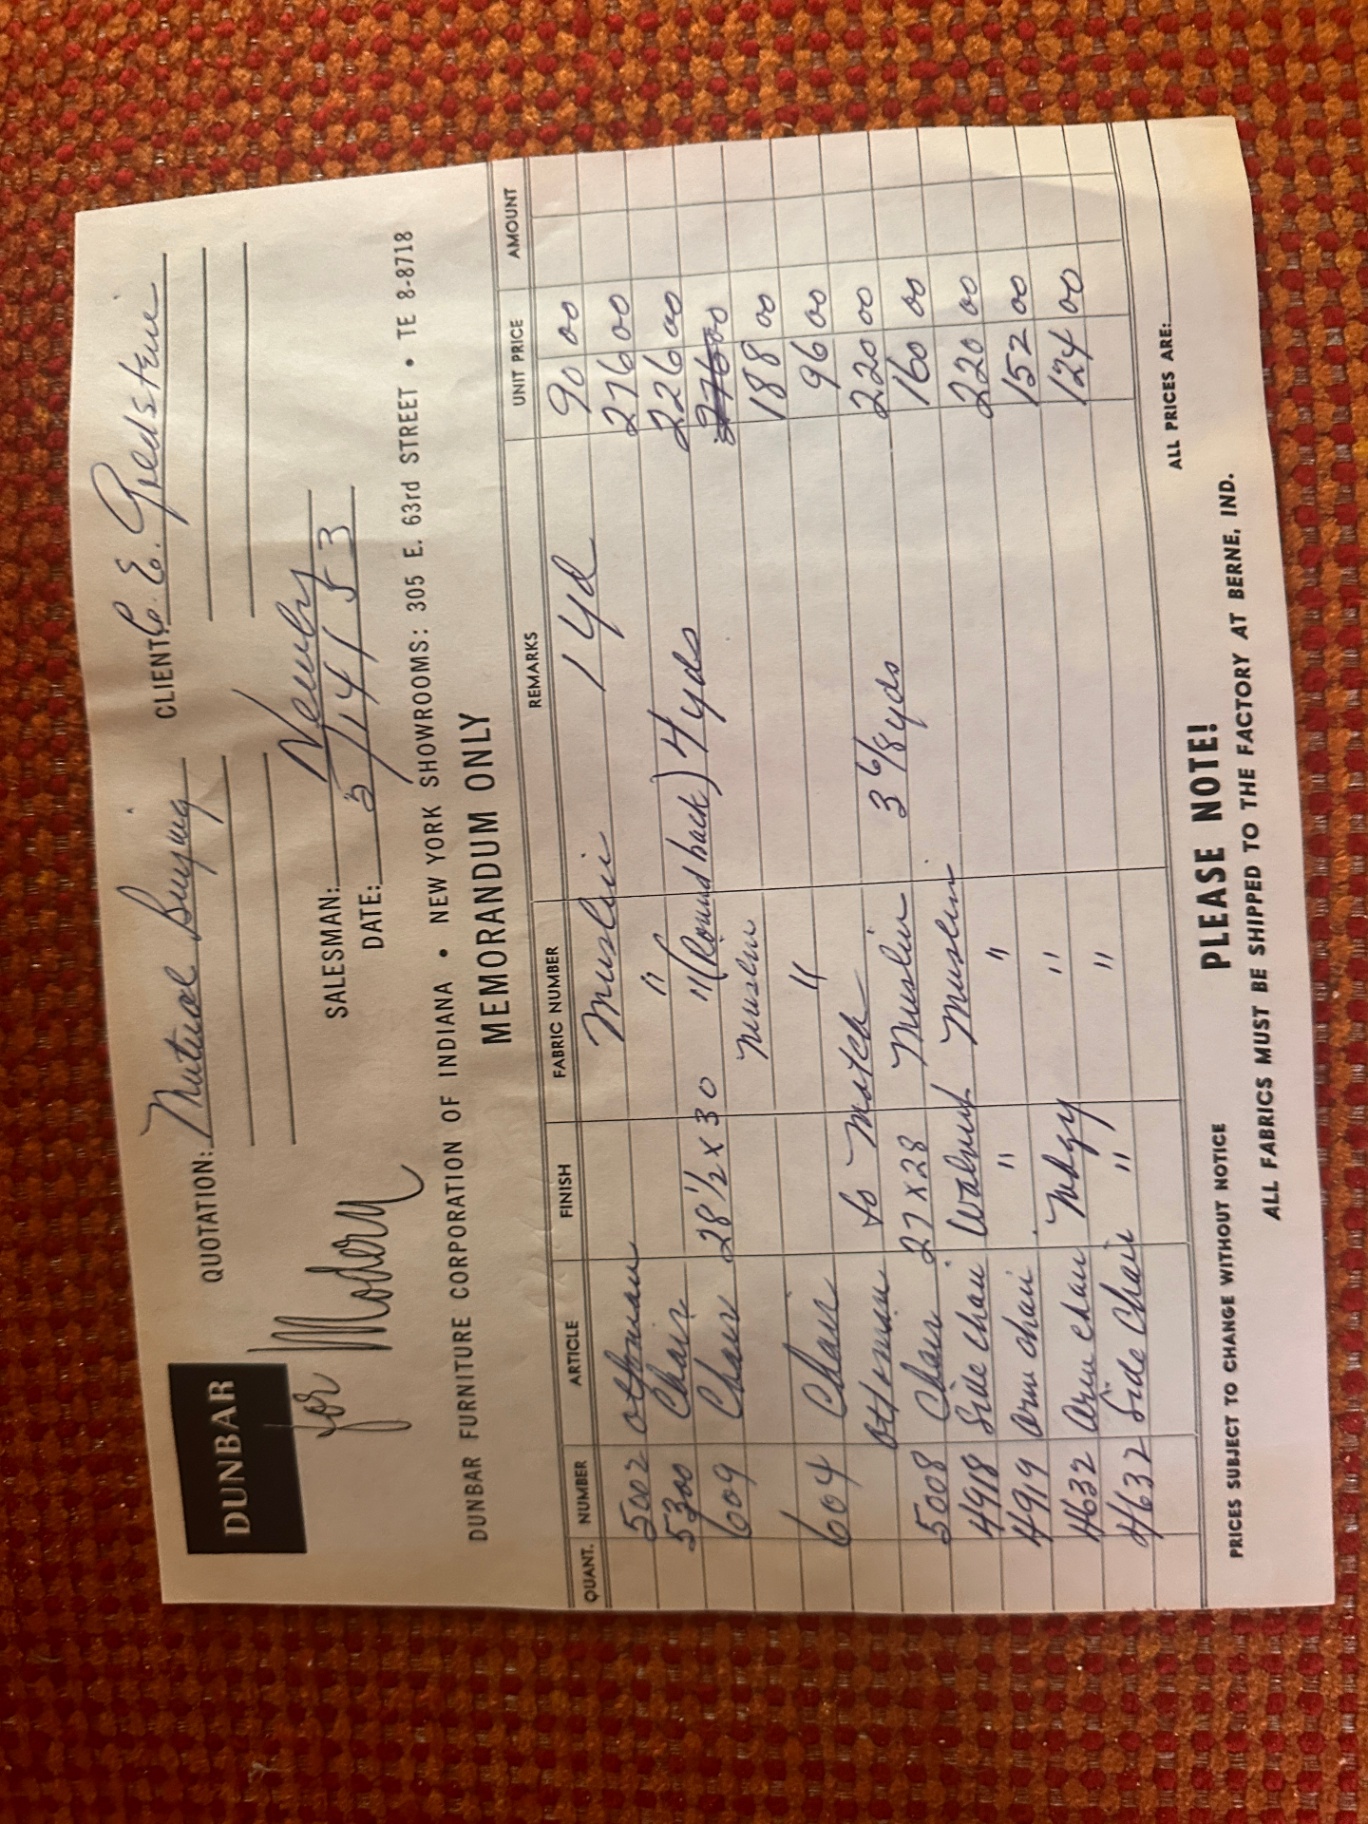 DUNBAR
for Modern
QUOTATION: Mutual Buying CLIENT: C. E. Goldstein
SALESMAN:
DATE: 5/14/53
DUNBAR FURNITURE CORPORATION OF INDIANA • NEW YORK SHOWROOMS: 305 E. 63rd STREET • TE 8-8718
MEMORANDUM ONLY
QUANT. NUMBER ARTICLE FINISH FABRIC NUMBER REMARKS UNIT PRICE AMOUNT
5002 Ottoman Muslin 1 yd 90 00
5300 Chair " 276 00
609 Chair 28 1/2 x 30 " (Round back) 4 yds 226 00
Muslin 276 00
604 Chair " 188 00
Ottoman to Match 96 00
5008 Chair 27 x 28 Muslin 3 6/8 yds 220 00
4918 Side Chair Walnut Muslin 160 00
4919 Arm Chair " " 220 00
4632 Arm Chair Mhgy " 152 00
4632 Side Chair " " 124 00
PRICES SUBJECT TO CHANGE WITHOUT NOTICE PLEASE NOTE! ALL PRICES ARE:
ALL FABRICS MUST BE SHIPPED TO THE FACTORY AT BERNE, IND.